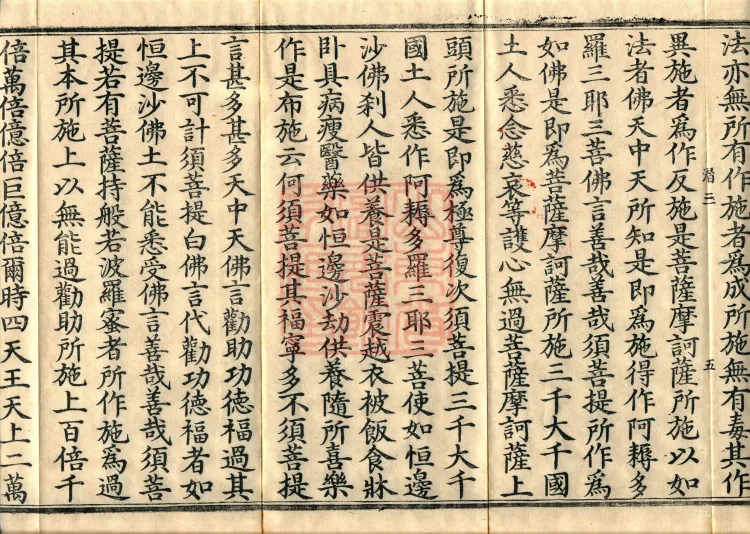 法亦無所有作施者爲成所施無有毒其作
異施者爲作反施是菩薩摩訶薩所施以如
法者佛天中天所知是即爲施得作阿耨多
羅三耶三菩佛言善哉善哉須菩提所作爲
如佛是即爲菩薩摩訶薩所施三千大千國
土人悉念慈哀等護心無過菩薩摩訶薩上
頭所施是即爲極尊復次須菩提三千大千
國土人悉作阿耨多羅三耶三菩使如恒邊
沙佛刹人皆供養是菩薩震越衣被飯食牀
卧具病瘦醫藥如恒邊沙劫供養隨所喜樂
作是布施云何須菩提其福寧多不須菩提
言甚多甚多天中天佛言勸助功德福過其
上不可計須菩提白佛言代勸功德福者如
恒邊沙佛土不能悉受佛言善哉善哉須菩
提若有菩薩持般若波羅蜜者所作施爲過
其本所施上以無能過勸助所施上百倍千
倍萬倍億倍巨億倍爾時四天王天上二萬
三
五